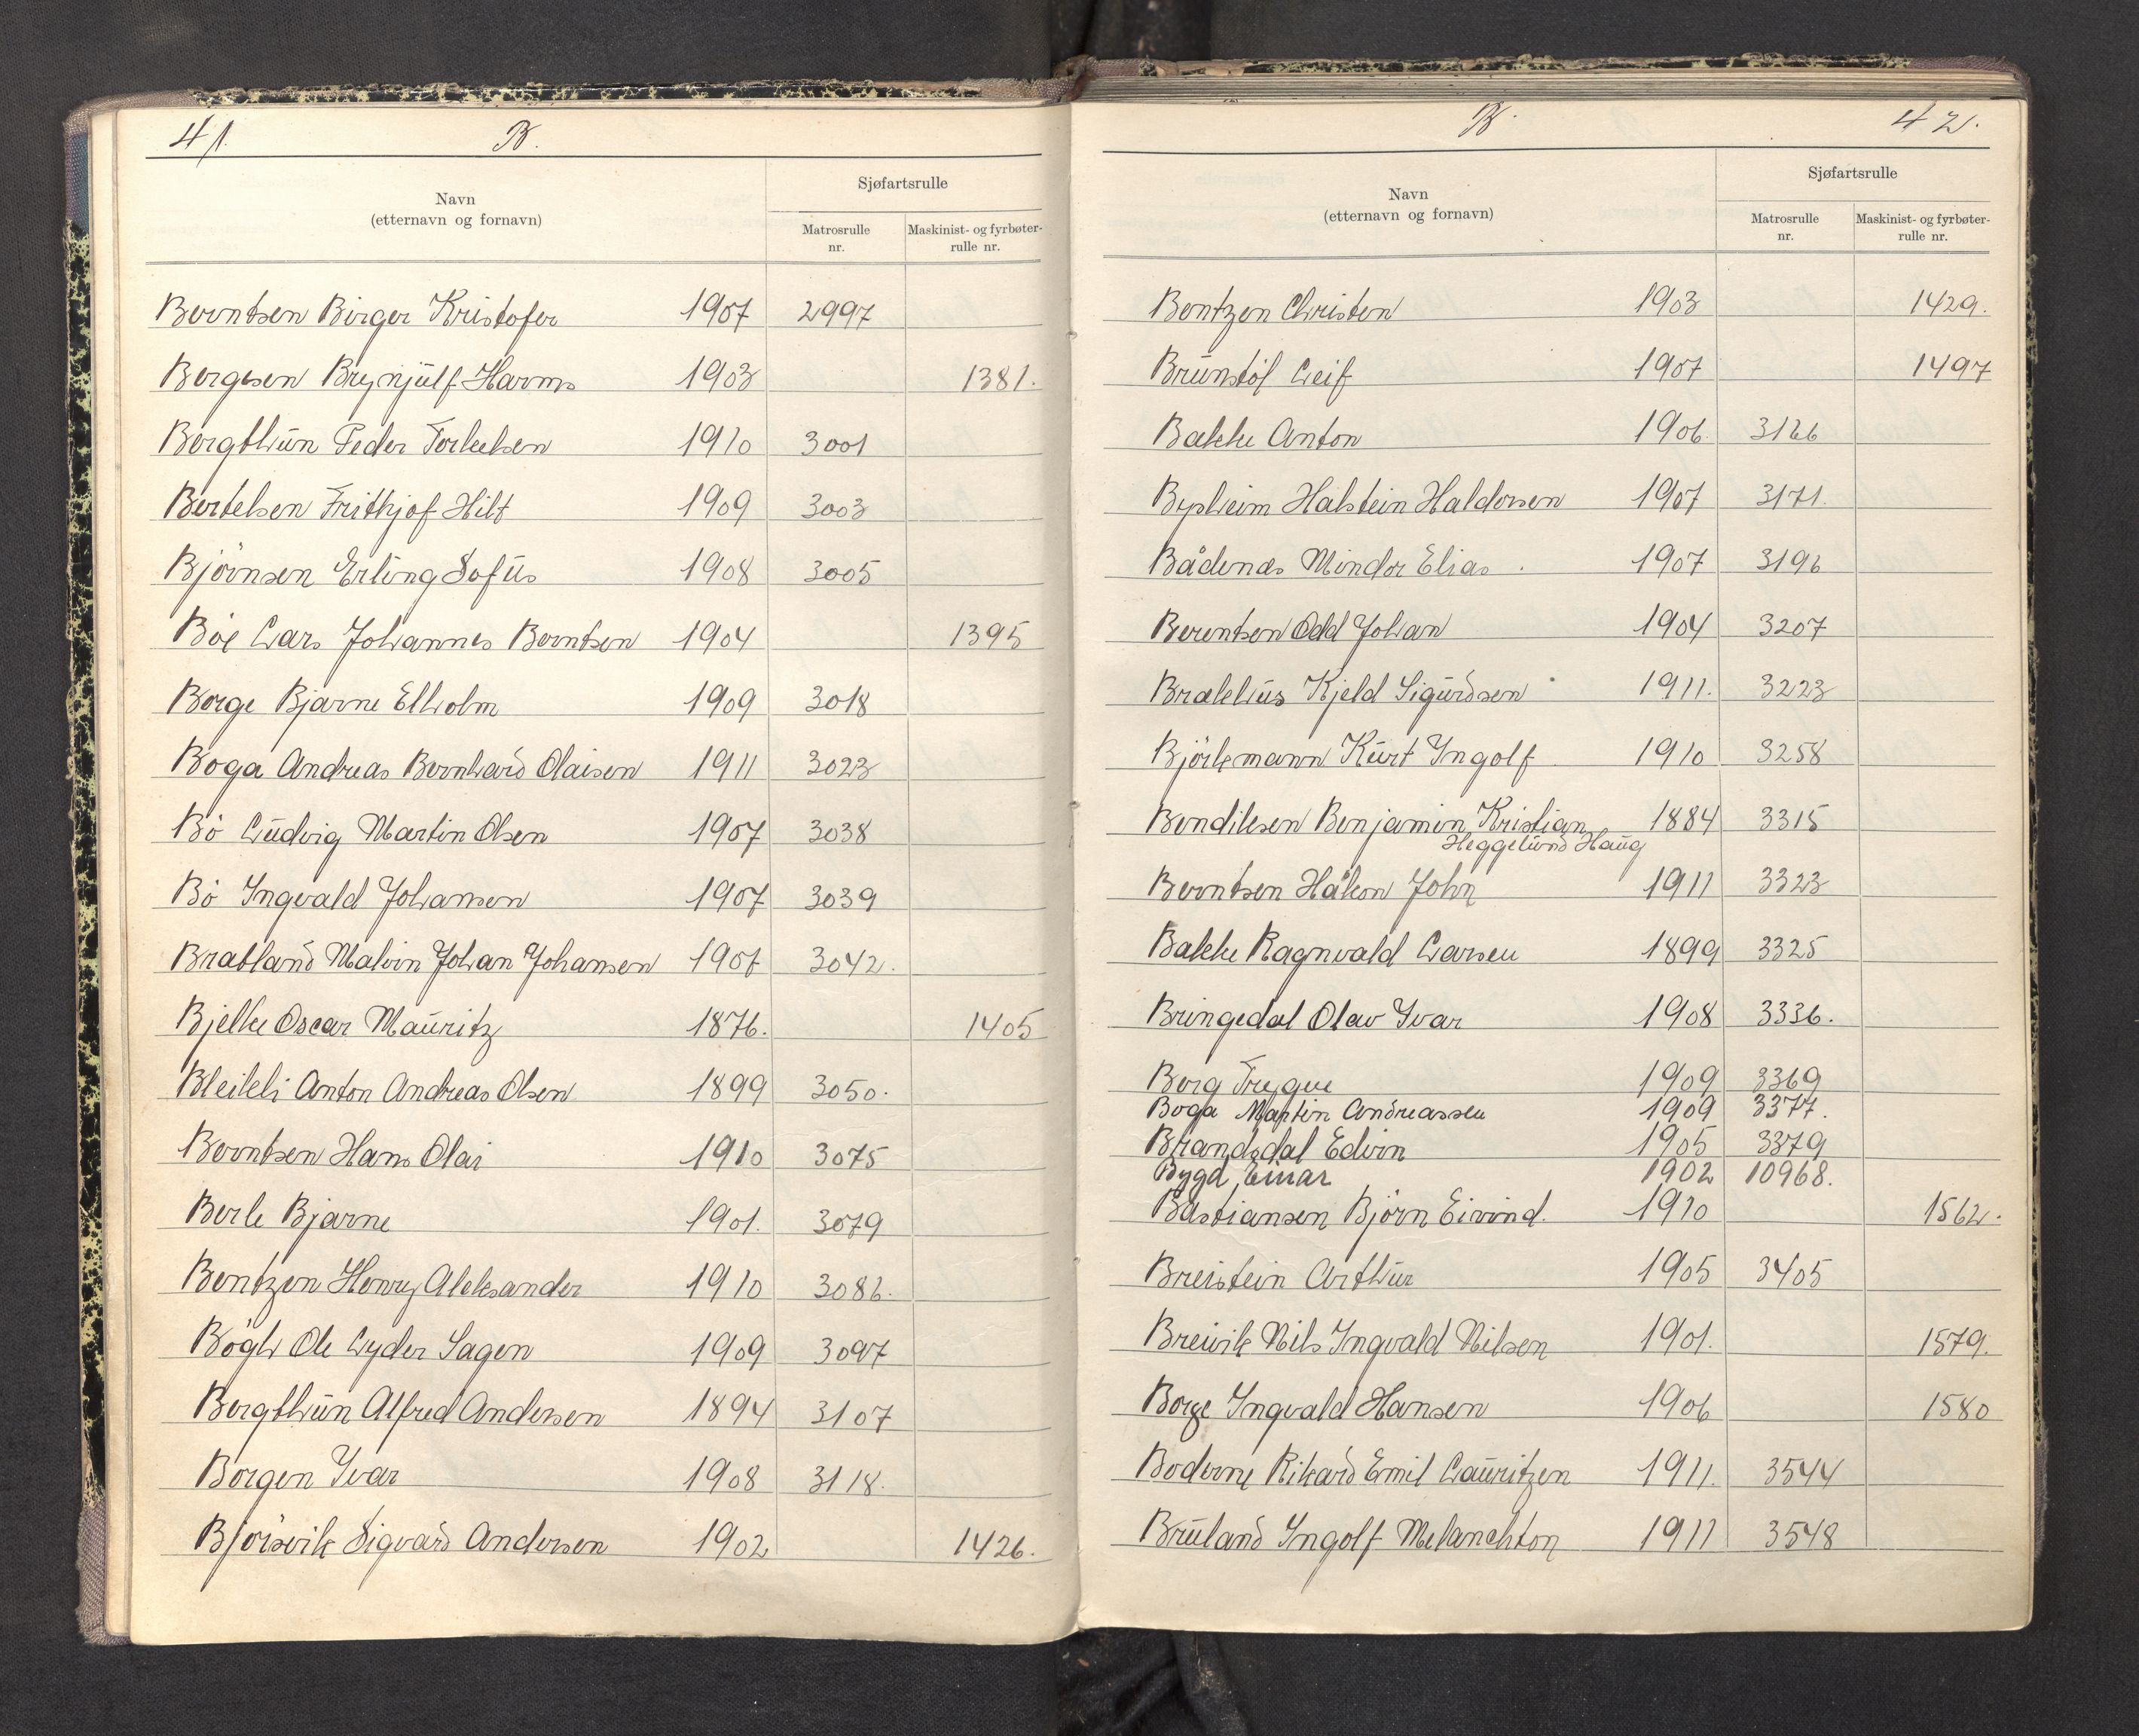 41. B.
Navn
(etternavn og fornavn)
Sjøfartsrulle
Matrosrulle
nr.
Maskinist- og fyrbøter-
rulle nr.
Berntsen Birger Kristofer 1907 2997
Bergesen Brynjulf Harms 1903 1381.
Bergthun Peder Torkelsen 1910 3001
Bertelsen Frithjof Hilt 1909 3003
Björnsen Erling Sofus 1908 3005
Böe Lars Johannes Berntsen 1904 1395
Borge Bjarne Elholm 1909 3018
Boga Andreas Bernhard Olaisen 1911 3023
Bö Ludvig Martin Olsen 1907 3038
Bö Ingvald Johansen 1907 3039
Bratland Malvin Johan Johansen 1907 3042.
Bjelke Oscar Mauritz 1876. 1405
Bleikli Anton Andreas Olsen 1899 3050.
Berntsen Hans Olai 1910 3075
Berle Bjarne 1901. 3079
Bentzen Henry Aleksander 1910 3086.
Bögh Ole Lyder Sagen 1909 3097
Bergthun Alfred Andersen 1894 3107
Borgen Ivar 1908 3118.
Bjørsvik Sigvard Andersen 1902 1426.
B. 42.
Navn
(etternavn og fornavn)
Sjøfartsrulle
Matrosrulle
nr.
Maskinist- og fyrbøter-
rulle nr.
Bentzen Christen 1903 1429.
Brunstöl Leif 1907 1497
Bakke Anton 1906. 3166
Bysheim Halstein Haldorsen 1907 3171.
Bådenes Mindor Elias 1907 3196
Berentsen Odd Johan 1904 3207
Brækhus Kjeld Sigurdsen 1911. 3223
Björkmann Kurt Ingolf 1910 3258
Bendiksen Benjamin Kristian 1884 3315
Heggelund Haug
Berntsen Håkon John 1911 3323
Bakke Ragnvald Larsen 1899 3325
Bringedal Olav Ivar 1908 3336.
Berg Trygve 1909 3369
Boga Martin Andreassen 1909 3377.
Brandsdal Edvin 1905 3379
Bygd, Einar 1902 10968.
Bastiansen Björn Eivind. 1910 1562.
Breistein Arthur 1905 3405
Breivik Nils Ingvald Nilsen 1901. 1579.
Borge Ingvald Hansen 1906 1580
Boderne Rikard Emil Lauritzen 1911. 3544
Bruland Ingolf Melanchton 1911 3548